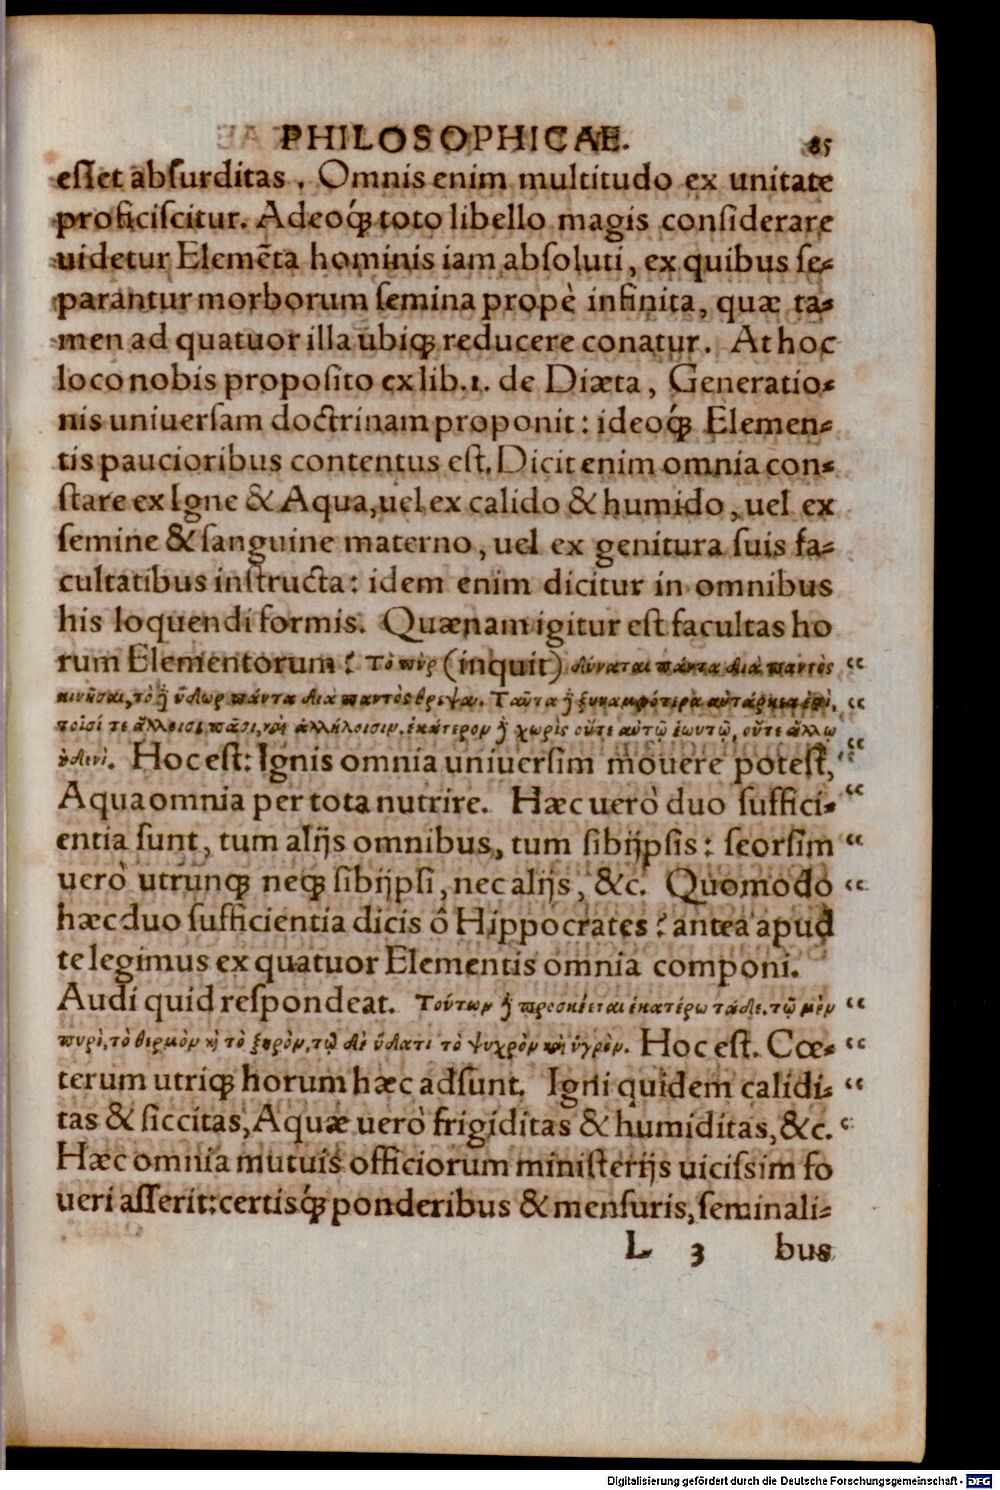 PHILOSOPHICAE. 85
esset absurditas. Omnis enim multitudo ex unitate
proficiscitur. Adeoq́ꝫ toto libello magis considerare
uidetur Elemẽta hominis iam absoluti, ex quibus se-
parantur morborum semina propè infinita, quæ ta-
men ad quatuor illa ubiqꝫ reducere conatur. At hoc
loco nobis proposito ex lib. 1. de Diæta, Generatio-
nis uniuersam doctrinam proponit: ideoq́ꝫ Elemen-
tis paucioribus contentus est. Dicit enim omnia con-
stare ex Igne & Aqua, uel ex calido & humido, uel ex
semine & sanguine materno, uel ex genitura suis fa-
cultatibus instructa: idem enim dicitur in omnibus
his loquendi formis. Quænam igitur est facultas ho
rum Elementorum? Τὸ πῦρ (inquit) δύναται πάντα διὰ παντὸς
κινῆσαι, τὸ ἢ ὕδωρ πάντα διὰ παντὸς θρέψαι. Ταῦτα ἢ ξυναμφότερα
τε ἄλλοισι πᾶσι, καὶ ἀλλήλοισιν. ἑκάτερον ἢ χωρὶς οὔτε αὐτῷ ἑωυτῷ, οὔτε ἄλλῳ
Hoc est: Ignis omnia uniuersim mouere potest,
Aqua omnia per tota nutrire. Hæc uerò duo suffici-
entia sunt, tum alijs omnibus, tum sibijpsis: seorsim
uerò utrunqꝫ neqꝫ sibijpsi, nec alijs, &c. Quomodo
hæc duo sufficientia dicis ô Hippocrates? antea apud
te legimus ex quatuor Elementis omnia componi.
Audi quid respondeat. Τούτων ἢ πρόσκειται ἑκατέρῳ τάδε. τῷ μὲν
πυρὶ, τὸ θερμὸν κὴ τὸ ξηρὸν, τῷ δὲ ὕδατι τὸ ψυχρὸν καὶ ὑγρὸν. Hoc est. Cœ-
terum utriqꝫ horum hæc adsunt. Igni quidem calidi-
tas & siccitas, Aquæ uerò frigiditas & humiditas, &c.
Hæc omnia mutuis officiorum ministerijs uicissim fo
ueri asserit: certisq́ꝫ ponderibus & mensuris, seminali-
L 3 bus
Digitalisierung gefördert durch die Deutsche Forschungsgemeinschaft - DFG